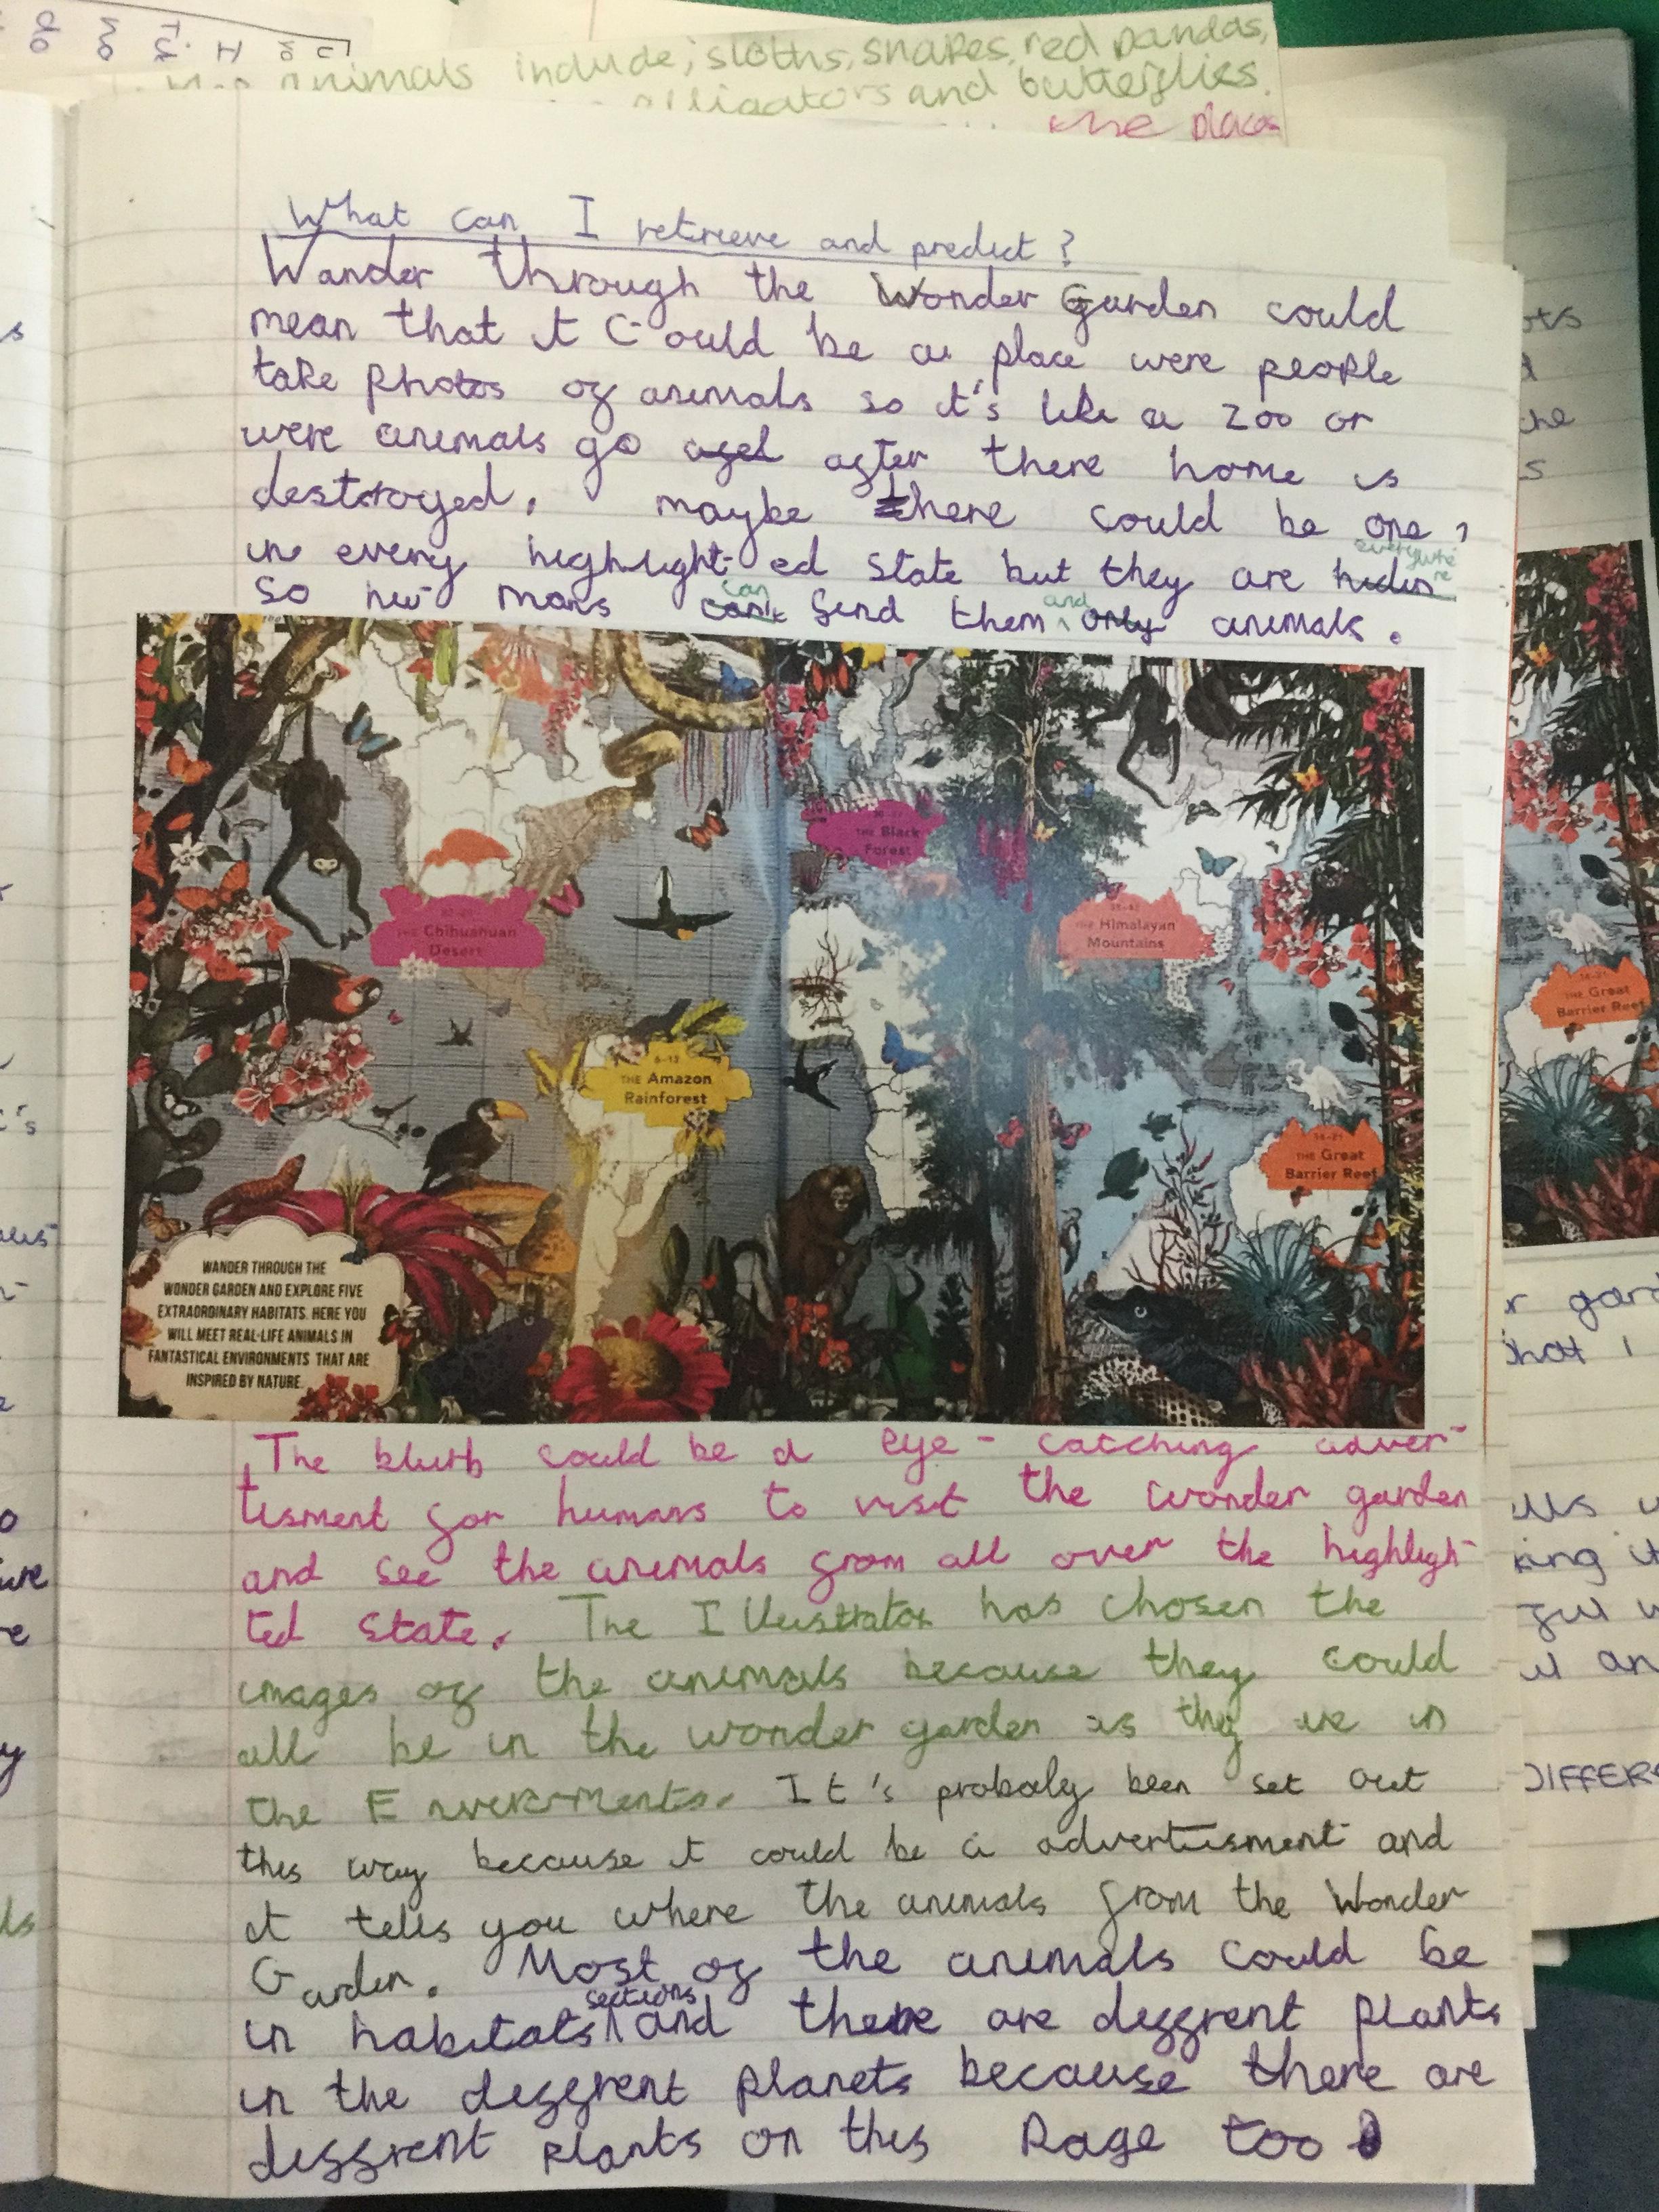 animals include; sloths, snakes, red pandas,
alligators and butterflies.
the place
What can I retrieve and predict?
Wander through the Wonder Garden could
mean that it C-ould be a place were people
take photos of animals so it's like a zoo or
were animals go after there home is
destroyed. maybe there could be one
in every highlight-ed state but they are everywhere
so hu-mans can find them and animals.
THE Black
Forest
THE Chihuahuan
Desert
THE Himalayan
Mountains
6-13
THE Amazon
Rainforest
14-21
THE Great
Barrier Reef
14-21
THE Great
Barrier Reef
WANDER THROUGH THE
WONDER GARDEN AND EXPLORE FIVE
EXTRAORDINARY HABITATS. HERE YOU
WILL MEET REAL-LIFE ANIMALS IN
FANTASTICAL ENVIRONMENTS THAT ARE
INSPIRED BY NATURE.
The blurb could be a eye-catching adver-
tisment for humans to visit the wonder garden
and see the animals from all over the highligh-
ted state. The Illustrator has chosen the
images of the animals because they could
all be in the wonder garden as they are in
the Enverments. It's probaly been set out
this way because it could be a advertisment and
it tells you where the animals from the Wonder
Garden. Most of the animals could be
in habitats sections and there are diffrent plants
in the diffrent planets because there are
diffrent plants on this Page too
DIFFER